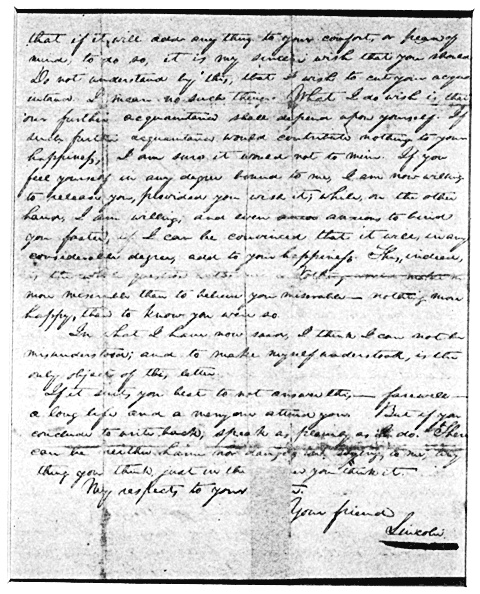 that if it will add any thing to your comfort, or peace of
mind, to do so, it is my sincere wish that you should
Do not understand by this, that I wish to cut your acqua
intance. I mean no such thing. What I do wish is, that
our further acquaintance shall depend upon yourself. If
such further acquaintance would contribute nothing to your
happiness, I am sure it would not to mine. If you
feel yourself in any degree bound to me, I am now willing
to release you, provided you wish it; while, on the other
hand, I am willing, and even anxious to bind
you faster, if I can be convinced that it will, in any
considerable degree, add to your happiness. This, indeed,
is the whole question with me. Nothing would make me
more miserable than to believe you miserable — nothing more
happy, than to know you were so.
In what I have now said, I think I can not be
misunderstood; and to make myself understood, is the
only object of this letter.
If it suits you best to not answer this — farewell —
a long life and a merry one attend you. But if you
conclude to write back, speak as plainly as I do. There
can be neither harm nor danger, in saying, to me, any
thing you think, just in the you think it.
My respects to your
Your friend
Lincoln